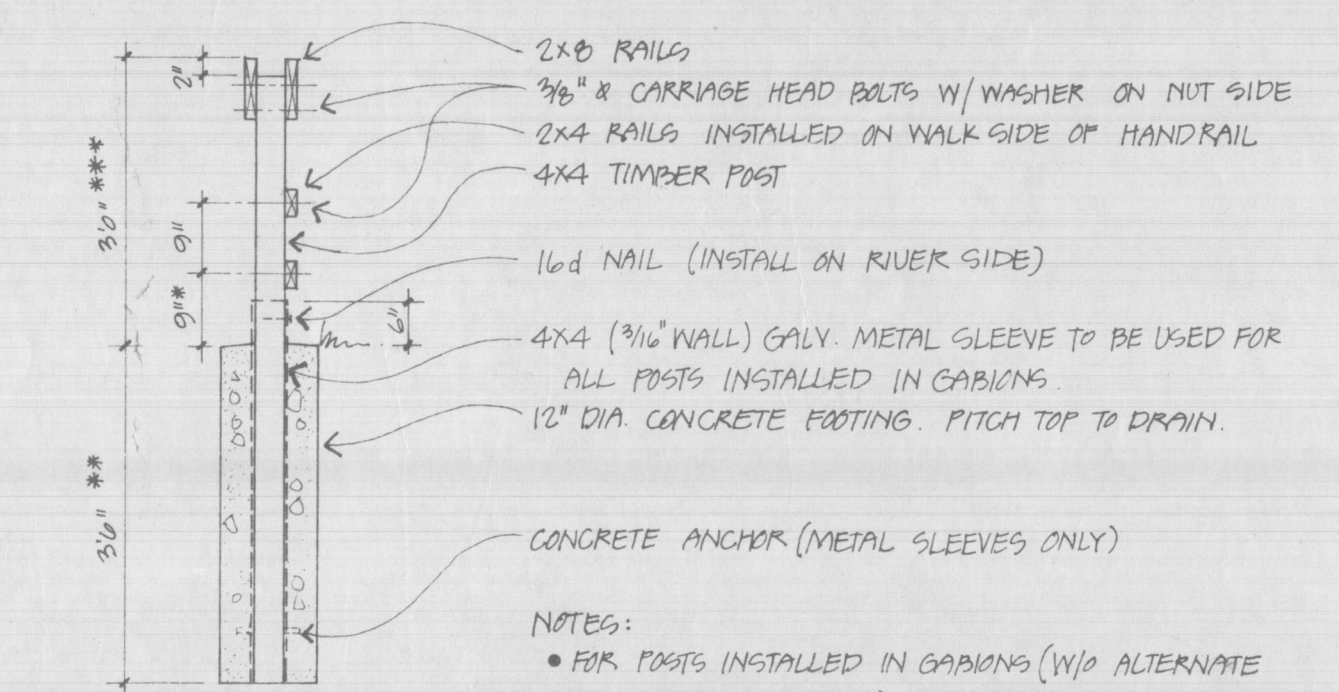 2X8 RAILS
3/8" Ø CARRIAGE HEAD BOLTS W/ WASHER ON NUT SIDE
2X4 RAILS INSTALLED ON WALK SIDE OF HANDRAIL
4X4 TIMBER POST
16d NAIL (INSTALL ON RIVER SIDE)
4X4 (3/16" WALL) GALV. METAL SLEEVE TO BE USED FOR
ALL POSTS INSTALLED IN GABIONS.
12" DIA. CONCRETE FOOTING. PITCH TOP TO DRAIN.
CONCRETE ANCHOR (METAL SLEEVES ONLY)
NOTES:
• FOR POSTS INSTALLED IN GABIONS (W/O ALTERNATE
2"
3'0" ***
9"
9"*
6"
3'6" **